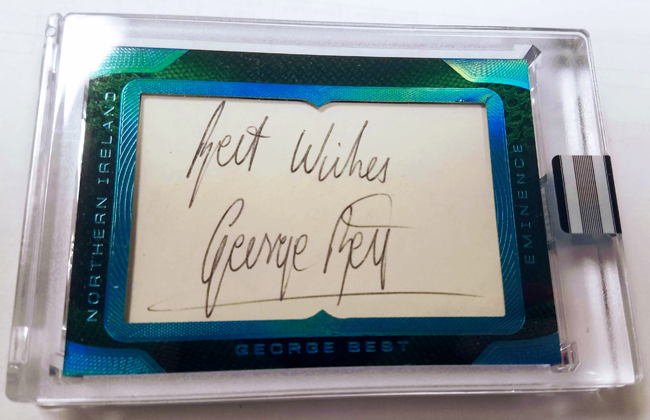 NORTHERN IRELAND
Best Wishes
George Best
EMINENCE
GEORGE BEST